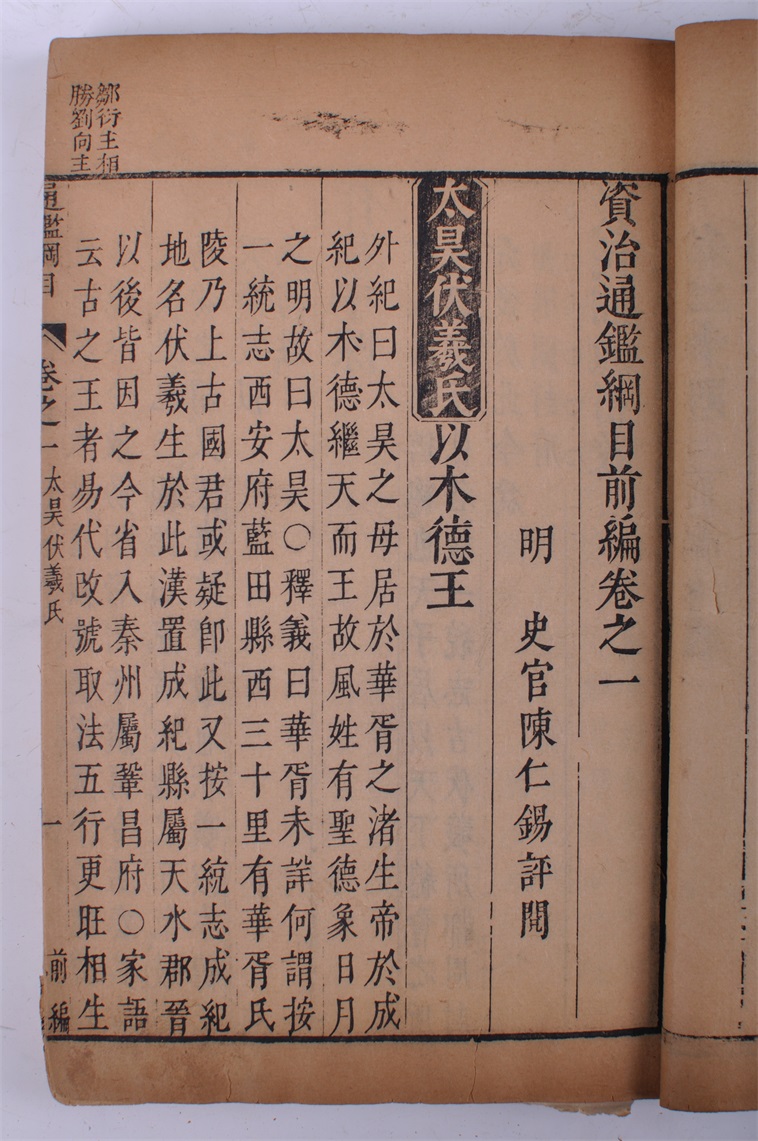 資治通鑑綱目前編卷之一
明 史官陳仁錫評閱
太昊伏羲氏以木德王
外紀曰太昊之母居於華胥之渚生帝於成
紀以木德繼天而王故風姓有聖德象日月
之明故曰太昊○釋義曰華胥未詳何謂按
一統志西安府藍田縣西三十里有華胥氏
陵乃上古國君或疑卽此又按一統志成紀
地名伏羲生於此漢置成紀縣屬天水郡晉
以後皆因之今省入秦州屬鞏昌府○家語
云古之王者易代改號取法五行更旺相生
鄒衍主相
勝劉向主
通鑑綱目 卷之一 太昊伏羲氏 一 前編